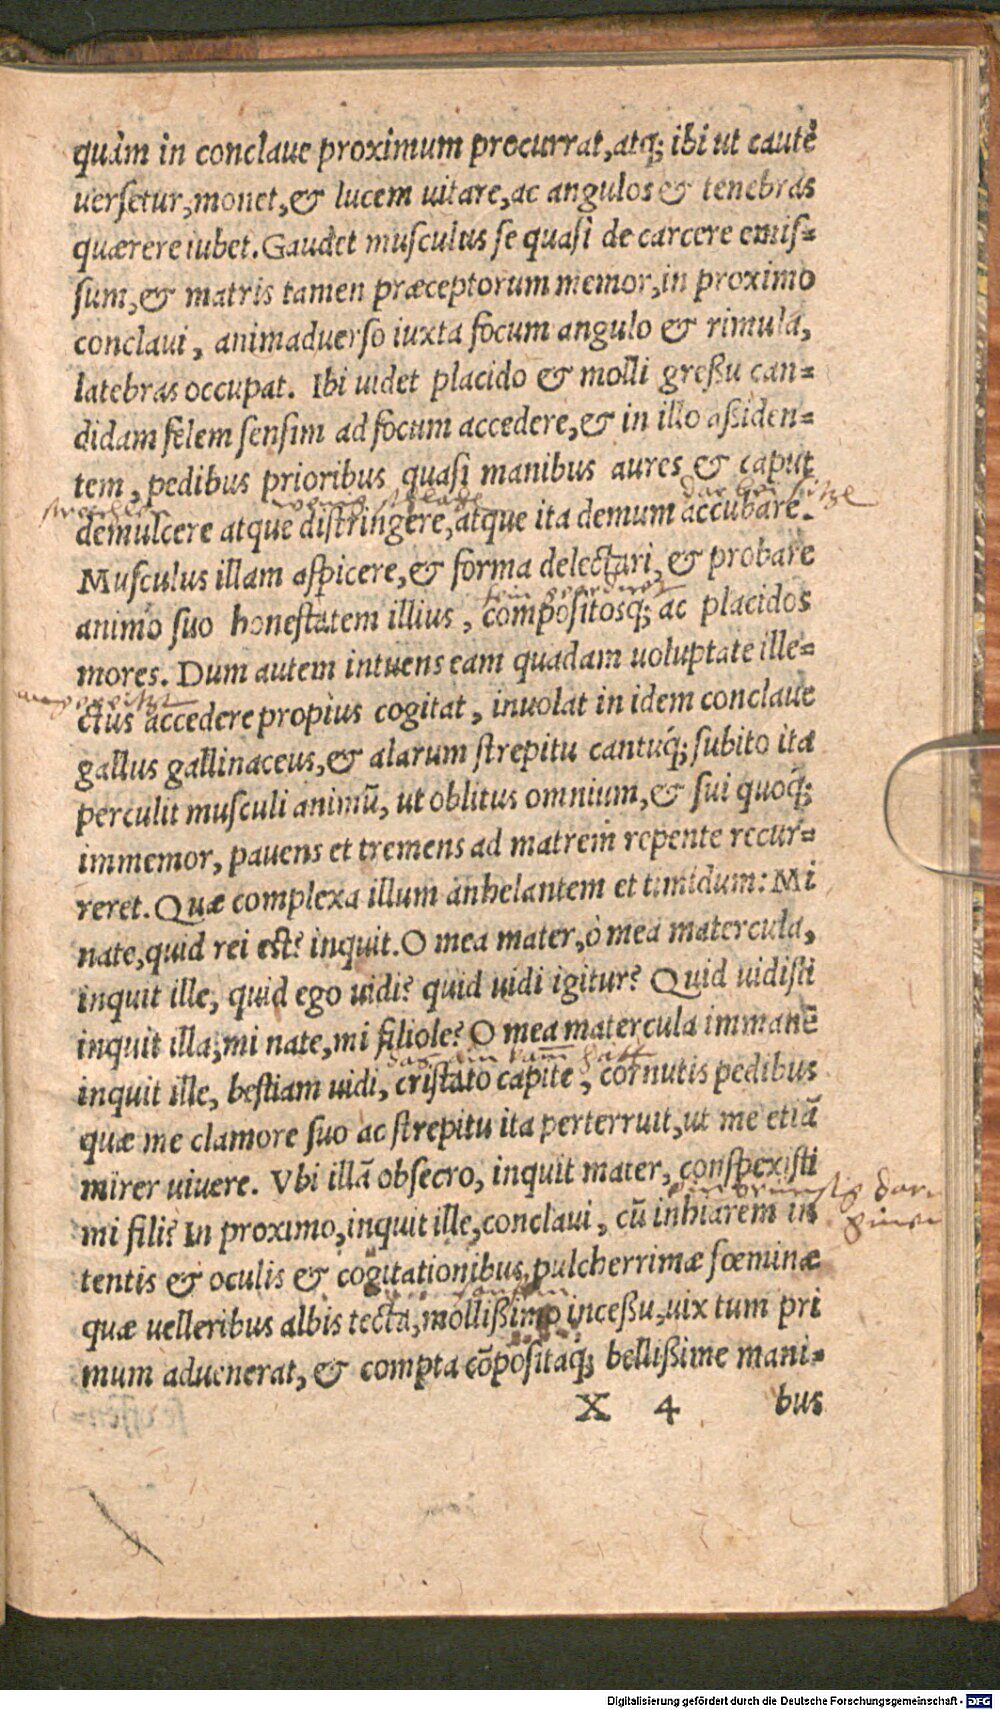 quàm in conclaue proximum procurrat, atq; ibi ut cautè
uersetur, monet, & lucem uitare, ac angulos & tenebras
quærere iubet. Gaudet musculus se quasi de carcere emis=
sum, & matris tamen præceptorum memor, in proximo
conclaui, animaduerso iuxta focum angulo & rimula,
latebras occupat. Ibi uidet placido & molli greßu can=
didam felem sensim ad focum accedere, & in illo aßiden=
tem, pedibus prioribus quasi manibus aures & caput
demulcere atque distringere, atque ita demum accubare.
Musculus illam aspicere, & forma delectari, & probare
animo suo honestatem illius, compositosq; ac placidos
mores. Dum autem intuens eam quadam uoluptate ille=
ctus accedere propiùs cogitat, inuolat in idem conclaue
gallus gallinaceus, & alarum strepitu cantuq́; subito ita
perculit musculi animũ, ut oblitus omnium, & sui quoq́;
immemor, pauens et tremens ad matrem repente recur=
reret. Quæ complexa illum anhelantem et timidum: Mi
nate, quid rei est? inquit. O mea mater, ò mea matercula,
inquit ille, quid ego uidi? quid uidi igitur? Quid uidisti
inquit illa, mi nate, mi filiole? O mea matercula immanẽ
das ein kam hatt
inquit ille, bestiam uidi, cristato capite, cornutis pedibus
quæ me clamore suo ac strepitu ita perterruit, ut me etiã
mirer uiuere. Vbi illã obsecro, inquit mater, conspexisti
mi fili? In proximo, inquit ille, conclaui, cũ inhiarem in
tentis & oculis & cogitationibus, pulcherrimæ fœminæ
quæ uelleribus albis tecta, mollißimo inceßu, uix tum pri
mum aduenerat, & compta cõpositaq́; bellißime mani=
X 4 bus
Digitalisierung gefördert durch die Deutsche Forschungsgemeinschaft - DFG